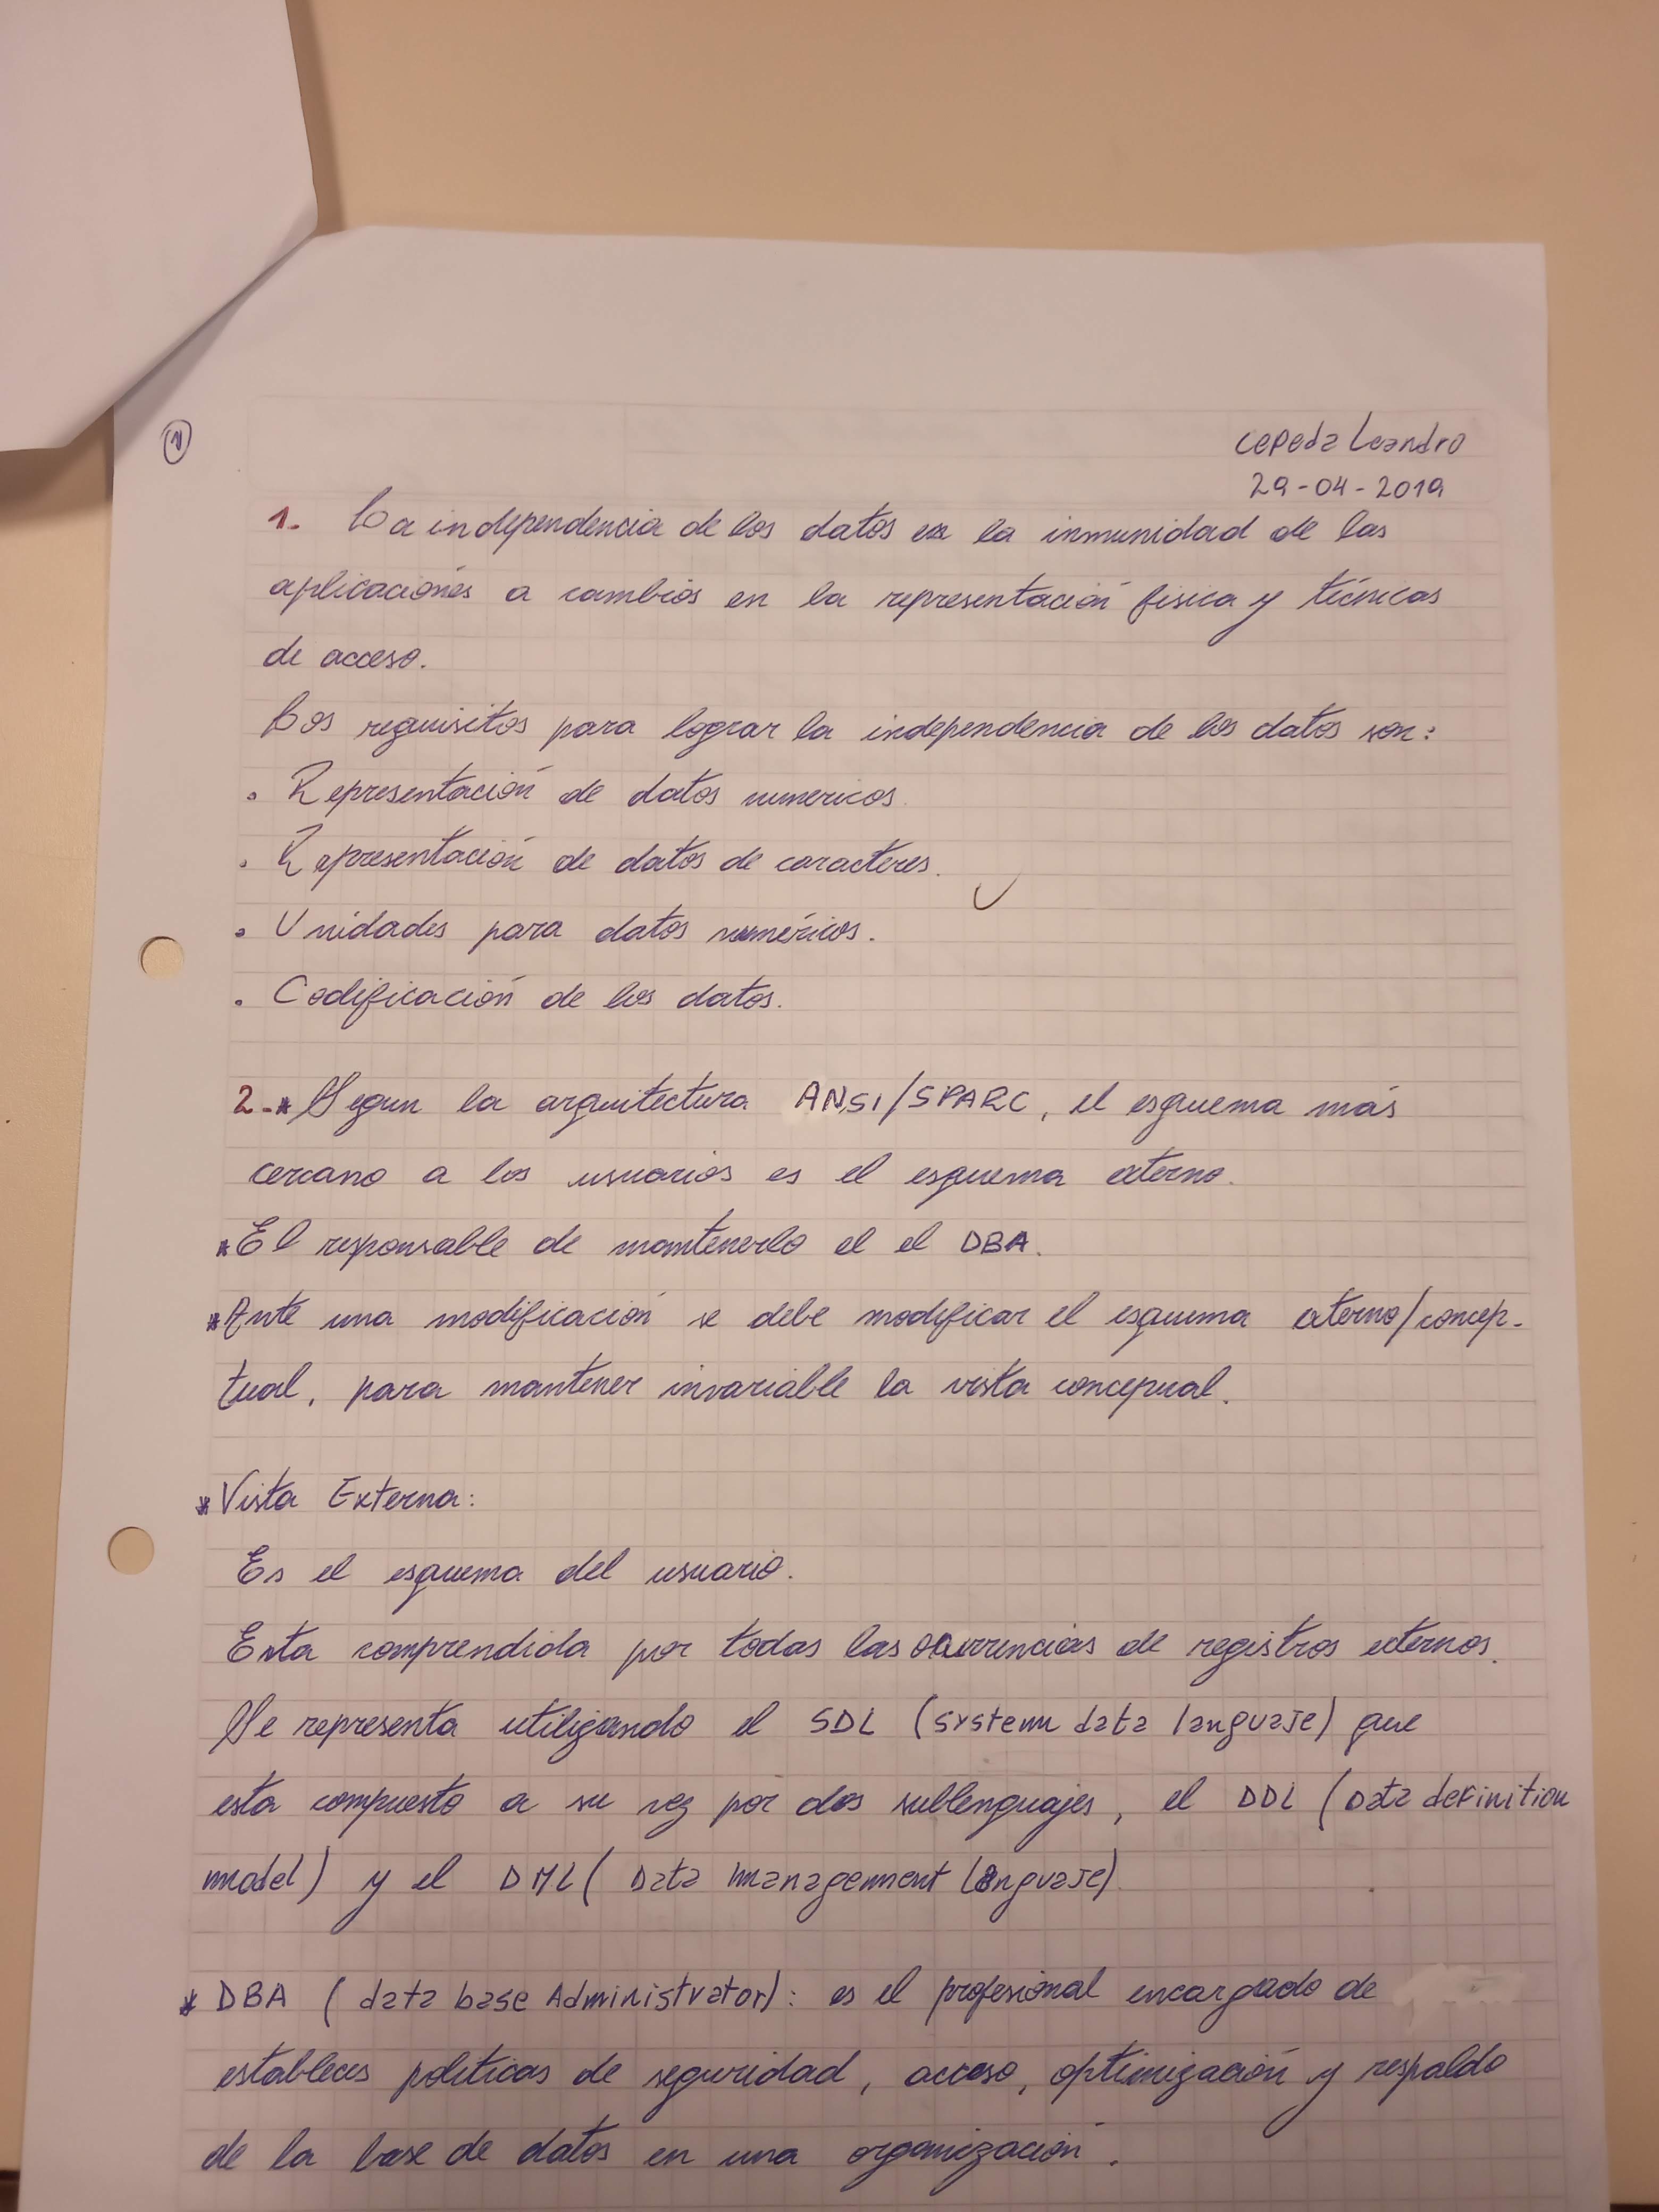 1
Cepeda Leandro
29-04-2019
1. La independencia de los datos es la inmunidad de las
aplicaciónes a cambios en la representación fisica y técnicas
de acceso.
Los requisitos para lograr la independencia de los datos son:
• Representación de datos numericos.
• Representación de datos de caracteres.
• Unidades para datos numéricos.
• Codificación de los datos.
2-* Segun la arquitectura ANSI/SPARC, el esquema más
cercano a los usuarios es el esquema externo.
*El responsable de mantenerlo el el DBA.
*Ante una modificación se debe modificar el esquema externo/concep-
tual, para mantener invariable la vista concepual.
*Vista Externa:
Es el esquema del usuario.
Esta comprendida por todas las ocurrencias de registros externos.
Se representa utilizando el SDL (system data languaje) que
esta compuesto a su vez por dos sublenguajes, el DDL (Data definition
model) y el DML (Data management Languaje).
* DBA (data base Administrator): es el profesional encargado de
estableces politicas de seguridad, acceso, optimización y respaldo
de la base de datos en una organización.